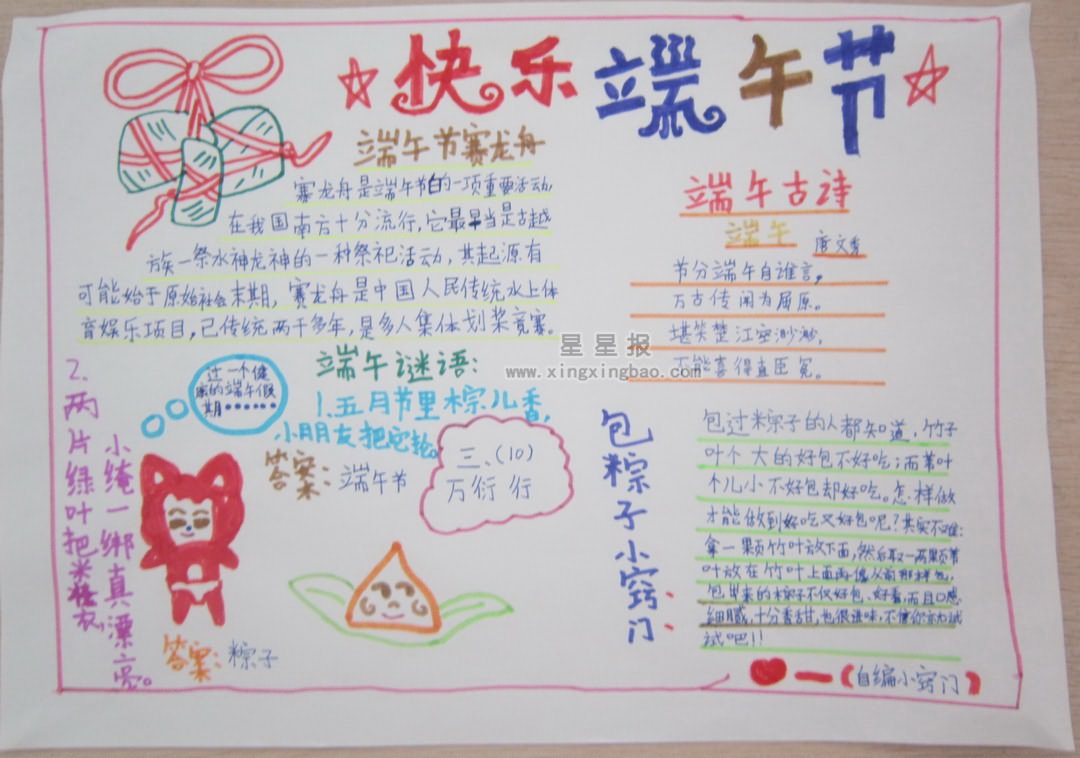 快乐端午节
端午节赛龙舟
赛龙舟是端午节的一项重要活动,
在我国南方十分流行,它最早当是古越
族一祭水神龙神的一种祭祀活动,其起源有
可能始于原始社会末期,赛龙舟是中国人民传统水上体
育娱乐项目,已传统两千多年,是多人集体划桨竞赛。
端午古诗
端午
唐文秀
节分端午自谁言,
万古传闻为屈原。
堪笑楚江空渺渺,
不能喜得直臣冤。
星星报
www.xingxingbao.com
端午谜语:
1.五月节里棕儿香,
小朋友把它轮。
答案:端午节
三、(10)
万衍行
过一个健
康的端午假
期••••••
2.两片绿叶把米糕裹,
小绳一绑真漂亮。
答案:粽子
包粽子小窍门:
包过粽子的人都知道,竹子
叶个大的好包不好吃;而苇叶
个儿小不好包却好吃。怎样做
才能做到好吃又好包呢?其实不难:
拿一颗竹叶放下面,然后取一两颗苇
叶放在竹叶上面再像以前那样包,
包出来的粽子不仅好包、好看,而且口感
细腻,十分香甜,也很美味,不懂你亦为试
试吧!!
一(自编小窍门)